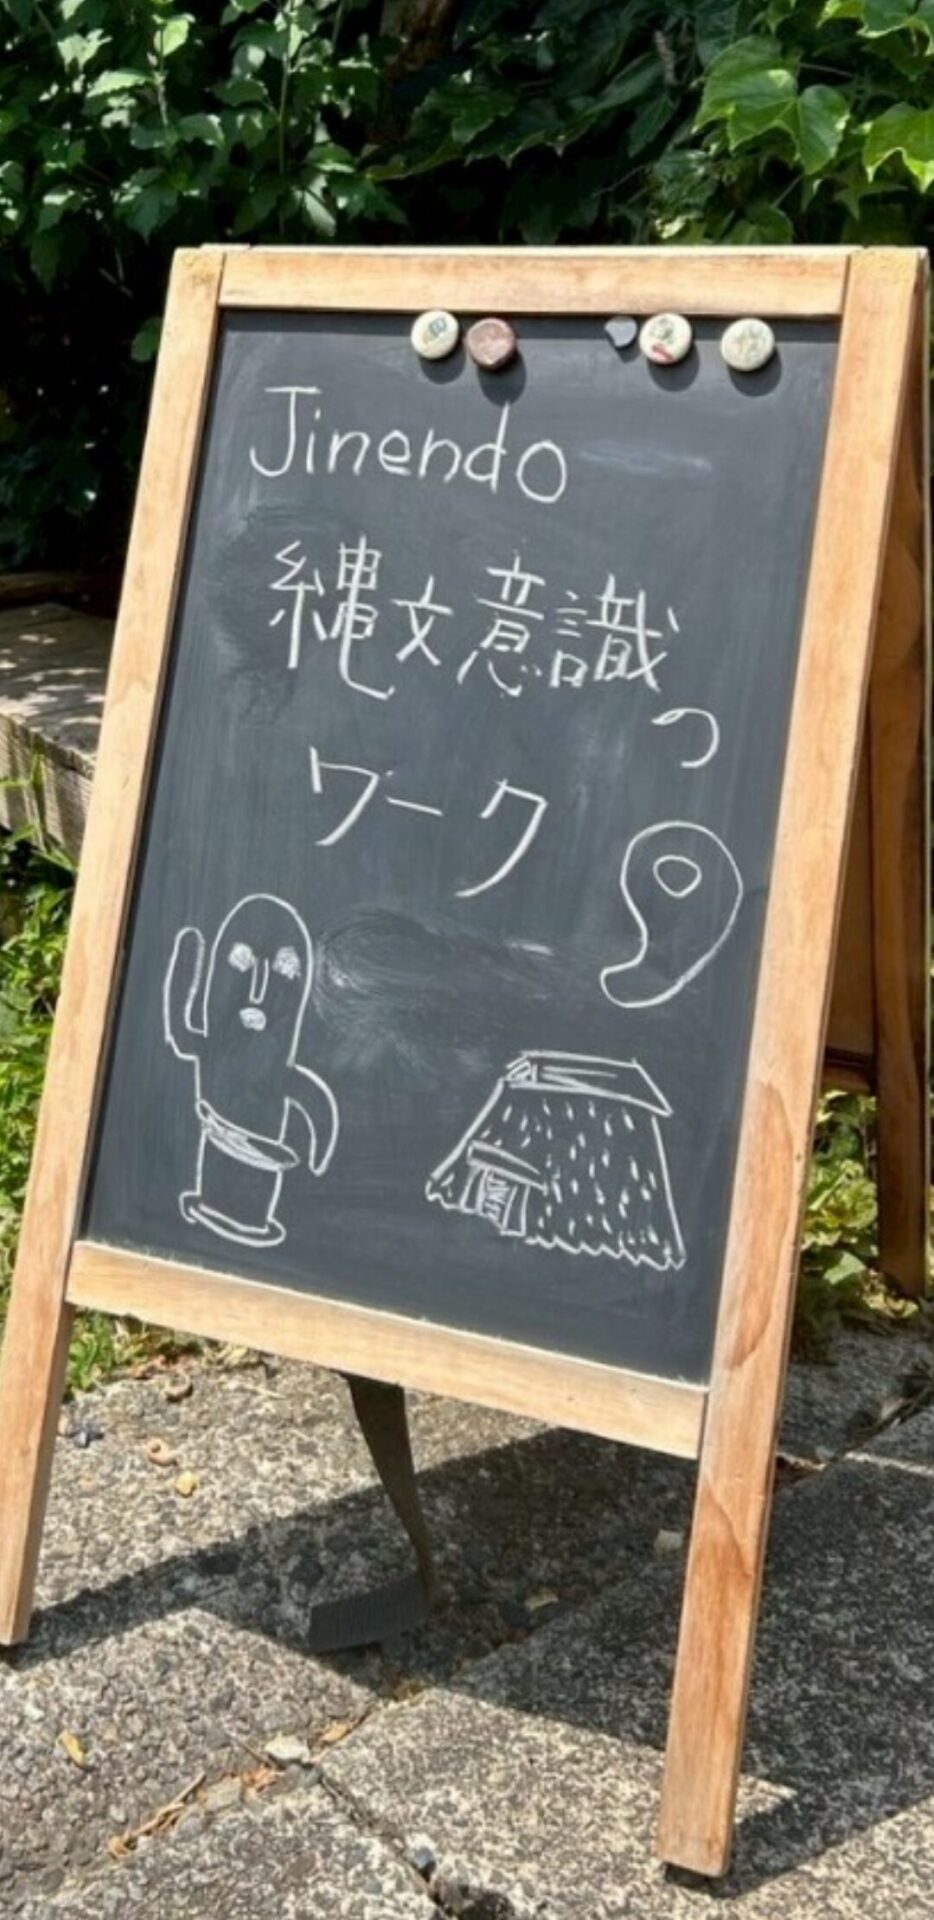 Jinendo
縄文意識
つ
ワーク